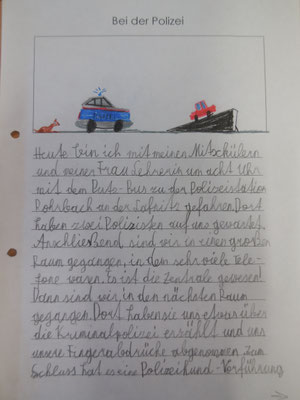 Bei der Polizei
POLIZEI
Heute bin ich mit meinen Mitschülern
und meiner Frau Lehrerin um acht Uhr
mit dem Puts-Bus zu der Polizeistation
Rohrbach an der Lafnitz gefahren. Dort
haben zwei Polizisten auf uns gewartet.
Anschließend sind wir in einen großen
Raum gegangen, in dem sehr viele Tele-
fone waren. Es ist die Zentrale gewesen!
Dann sind wir in den nächsten Raum
gegangen. Dort haben sie uns etwas über
die Kriminalpolizei erzählt und uns
unsere Fingerabdrücke abgenommen. Zum
Schluss hat es eine Polizeihund-Vorführung